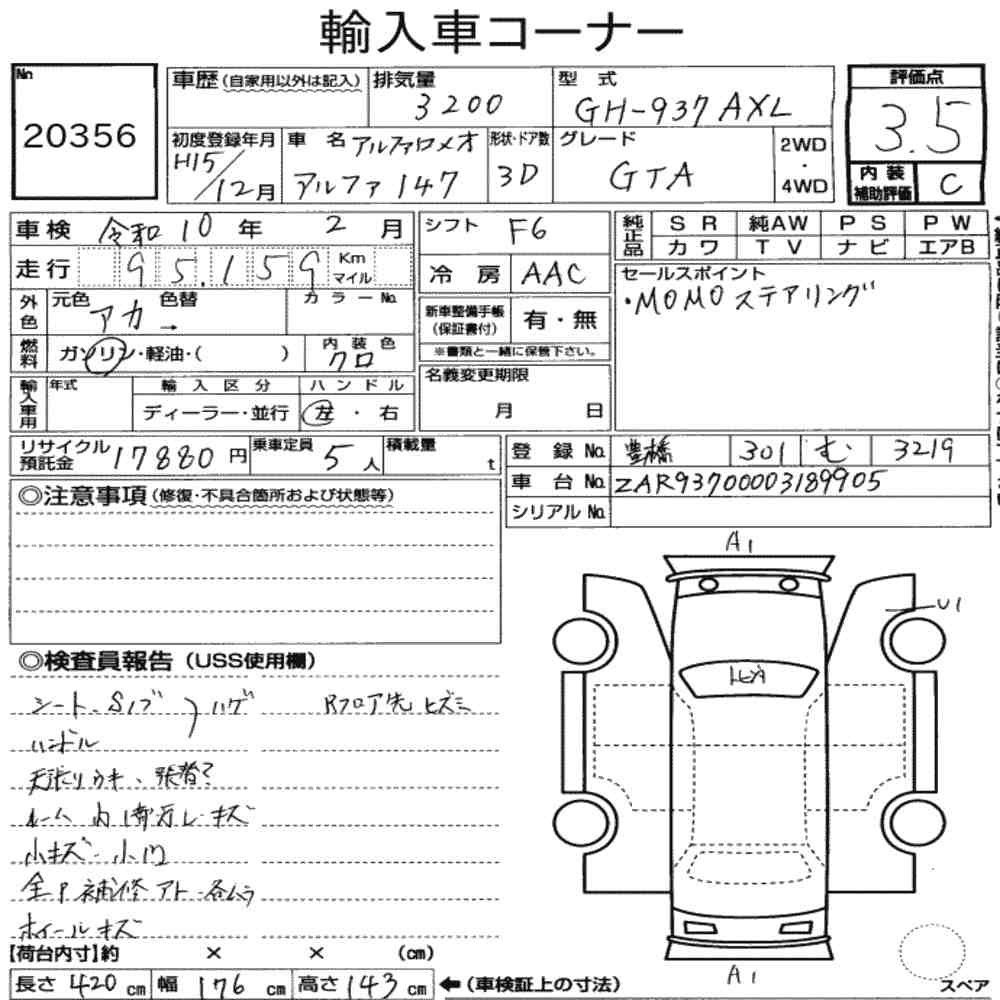 輸入車コーナー
No. 20356
車歴(自家用以外は記入) 排気量 3200 型式 GH-937AXL
評価点 3.5
初度登録年月 H15/12月 車名 アルファロメオ アルファ147 形状・ドア数 3D グレード GTA 2WD・4WD
内装補助評価 C
車検 令和10年 2月 シフト F6
純正品 SR 純AW PS PW
カワ TV ナビ エアB
走行 95,159 Km マイル 冷房 AAC
セールスポイント
・MOMOステアリング
外色 元色 アカ 色替 → カラーNo.
新車整備手帳(保証書付) 有・無
※書類と一緒に保管下さい。
燃料 ガソリン・軽油・( ) 内装色 クロ
名義変更期限 月 日
輸入車用 年式 輸入区分 ディーラー・並行 ハンドル 左・右
リサイクル預託金 17880円 乗車定員 5人 積載量 t
登録No. 豊橋 301 む 3219
車台No. ZAR93700003189905
シリアルNo.
◎注意事項(修復・不具合箇所および状態等)
◎検査員報告(USS使用欄)
シート、Sノブ ハゲ Rフロア先ヒズミ
ハンドル
天張りウキ、張替?
ルーム内 キズ
小キズ 小凹
全P補修アト 各ムラ
ホイールキズ
A1
U1
トビ
A1
【荷台内寸】約 × × (cm)
長さ 420cm 幅 176cm 高さ 143cm ←(車検証上の寸法)
スペア